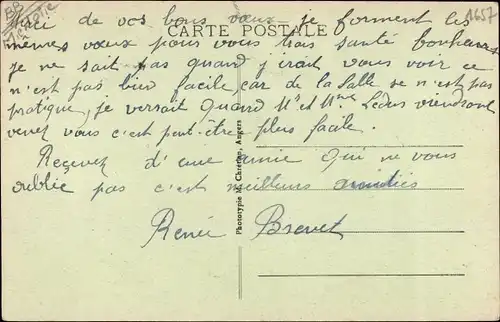 de vos bons vœux je forment les
CARTE POSTALE
1657
mêmes vœux pour vous trois santé bonheur
je ne sait pas quand j'irait vous voir ce
n'est pas bien facile, car de la Salle se n'est pas
pratique, je verrait Quand Mr et Mme viendront
venez vous c'est peut-être plus facile.
Recevez d'une amie Qui ne vous
oublie pas c'est meilleurs amitiés
Renée Brevet
Phototypie M. Chrétien, Angers